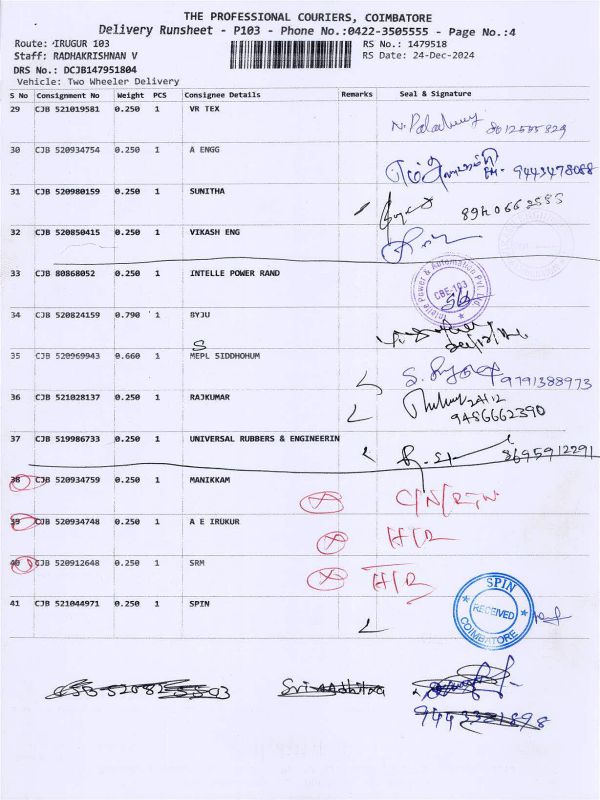 THE PROFESSIONAL COURIERS, COIMBATORE
Delivery Runsheet - P103 - Phone No.:0422-3505555 - Page No.:4
Route: IRUGUR 103 RS No.: 1479518
Staff: RADHAKRISHNAN V RS Date: 24-Dec-2024
DRS No.: DCJB147951804
Vehicle: Two Wheeler Delivery
S No Consignment No Weight PCS Consignee Details Remarks Seal & Signature
29 CJB 521019581 0.250 1 VR TEX
30 CJB 520934754 0.250 1 A ENGG
9443478088
31 CJB 520980159 0.250 1 SUNITHA
32 CJB 520850415 0.250 1 VIKASH ENG
33 CJB 80868052 0.250 1 INTELLE POWER RAND
Intelle Power & Automation Pvt. Ltd
CBE-103
34 CJB 520824159 0.790 1 BYJU
S
35 CJB 520969943 0.660 1 MEPL SIDDHOHUM
9791388973
36 CJB 521028137 0.250 1 RAJKUMAR
24/12
9486662390
37 CJB 519986733 0.250 1 UNIVERSAL RUBBERS & ENGINEERIN
8695912291
38 CJB 520934759 0.250 1 MANIKKAM
39 CJB 520934748 0.250 1 A E IRUKUR
40 CJB 520912648 0.250 1 SRM
41 CJB 521044971 0.250 1 SPIN
SPIN
RECEIVED
COIMBATORE